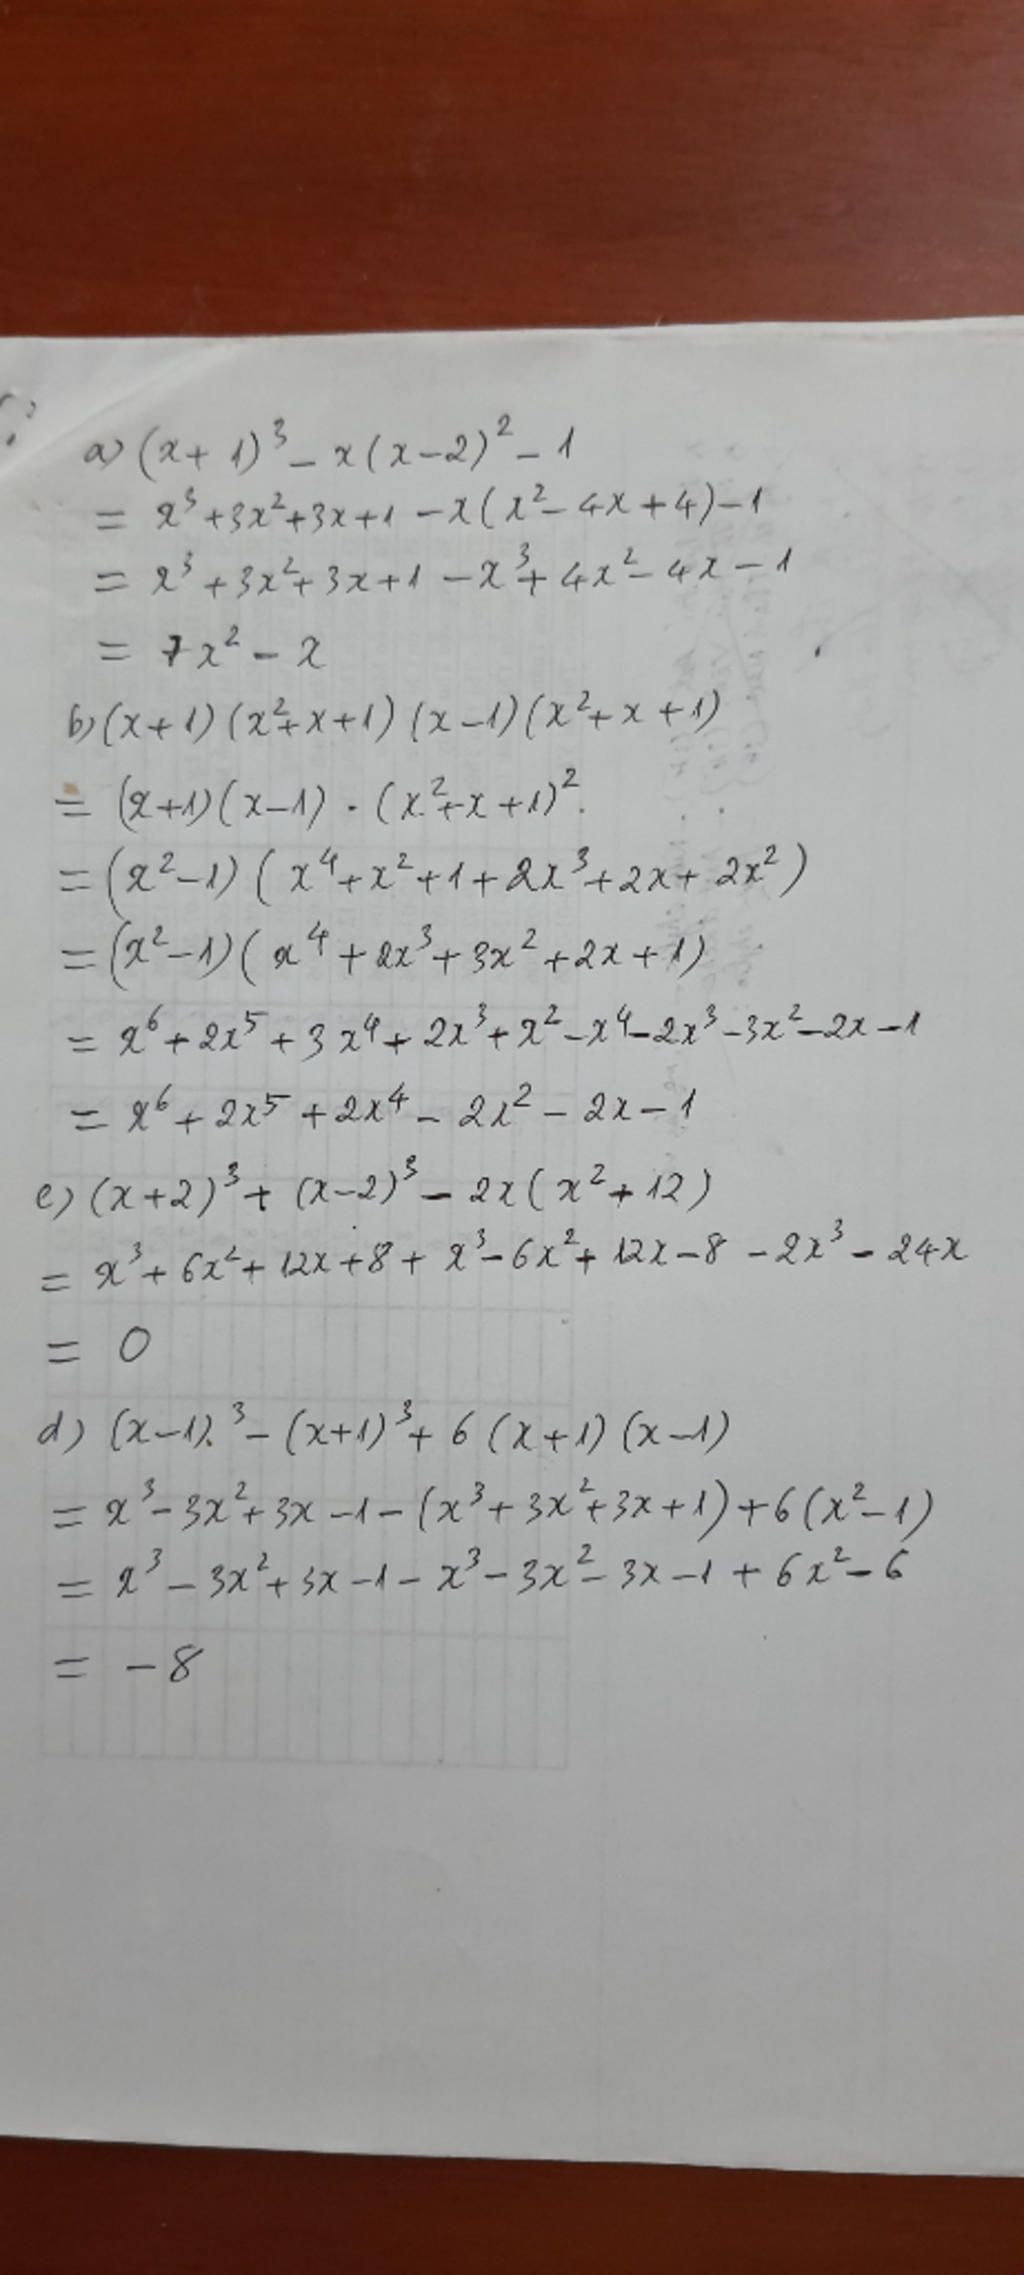 a) (x+1)³ - x(x-2)² - 1
= x³+3x²+3x+1 - x(x²-4x+4)-1
= x³+3x²+3x+1 - x³+4x²-4x-1
= 7x² - x
b) (x+1)(x²+x+1)(x-1)(x²+x+1)
= (x+1)(x-1) . (x²+x+1)².
= (x²-1)(x⁴+x²+1+2x³+2x+2x²)
= (x²-1)(x⁴+2x³+3x²+2x+1)
= x⁶+2x⁵+3x⁴+2x³+x²-x⁴-2x³-3x²-2x-1
= x⁶+2x⁵+2x⁴-2x²-2x-1
c) (x+2)³+(x-2)³-2x(x²+12)
= x³+6x²+12x+8+x³-6x²+12x-8-2x³-24x
= 0
d) (x-1)³-(x+1)³+6(x+1)(x-1)
= x³-3x²+3x-1-(x³+3x²+3x+1)+6(x²-1)
= x³-3x²+3x-1-x³-3x²-3x-1+6x²-6
= -8